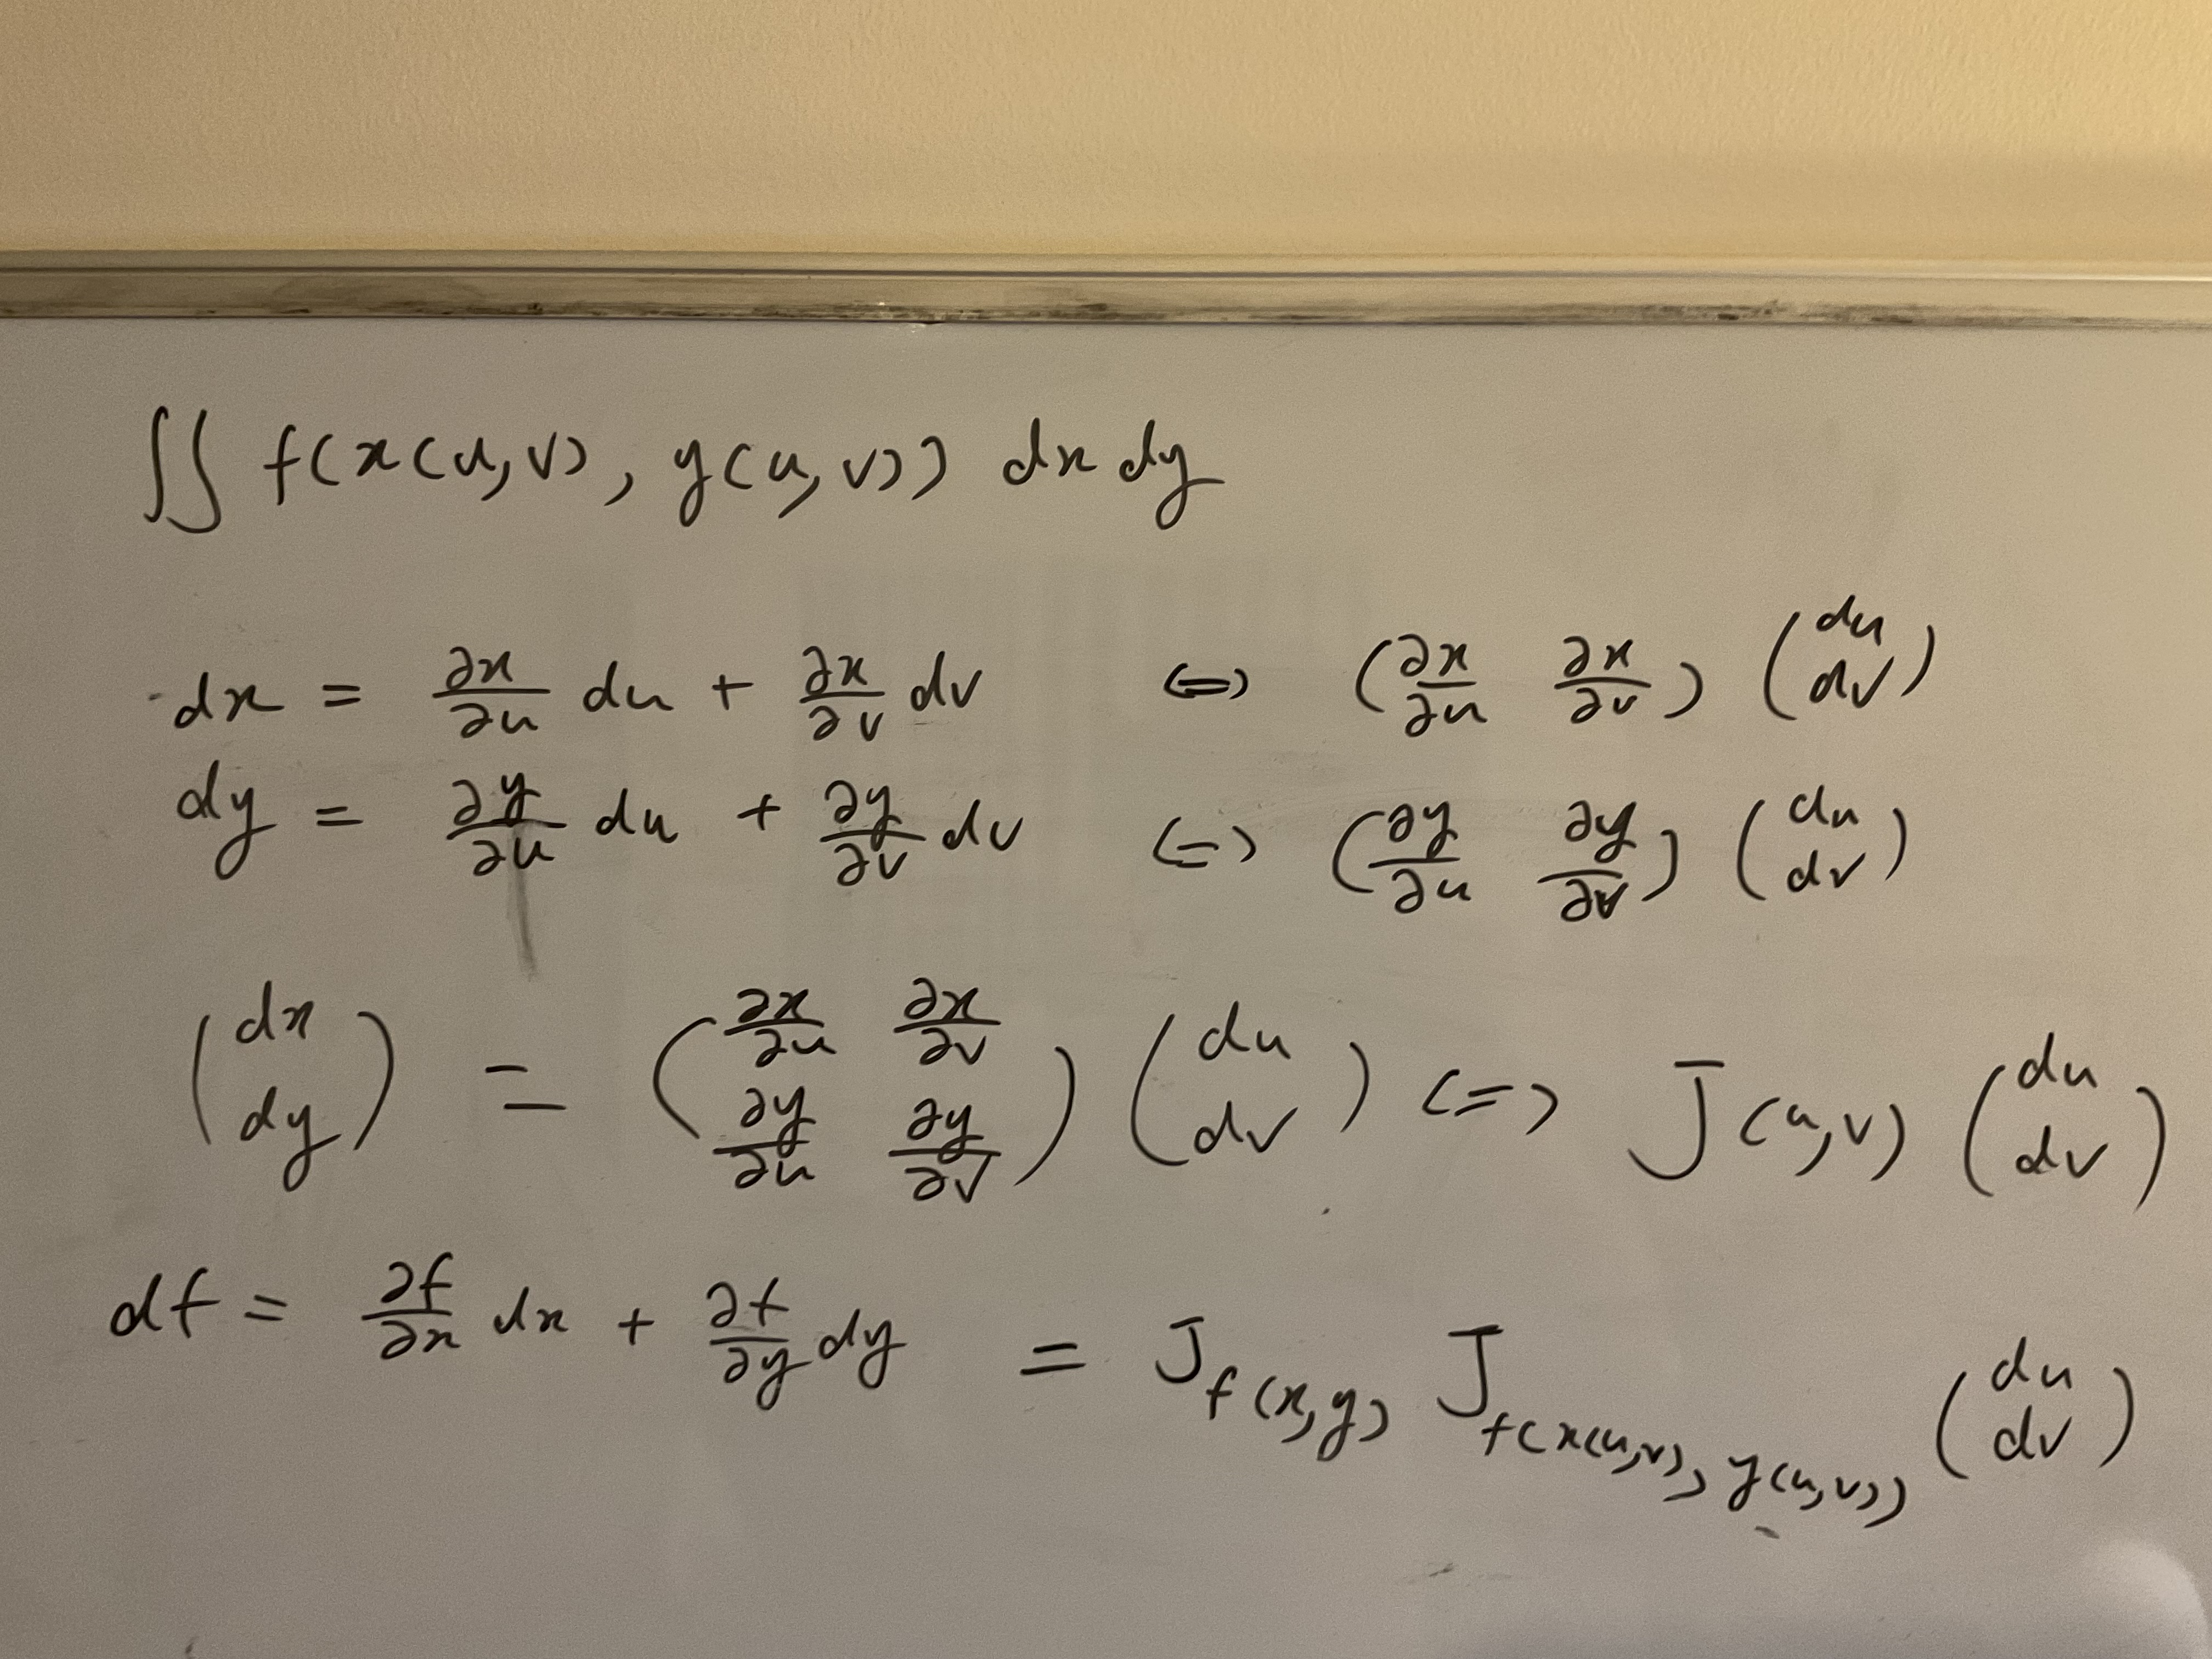 ∬ f(x(u,v), y(u,v)) dx dy
dx = ∂x/∂u du + ∂x/∂v dv <=> (∂x/∂u ∂x/∂v) (du dv)
dy = ∂y/∂u du + ∂y/∂v dv <=> (∂y/∂u ∂y/∂v) (du dv)
(dx dy) = (∂x/∂u ∂x/∂v ∂y/∂u ∂y/∂v) (du dv) <=> J(u,v) (du dv)
df = ∂f/∂x dx + ∂f/∂y dy = J_f(x,y) J_f(x(u,v), y(u,v)) (du dv)